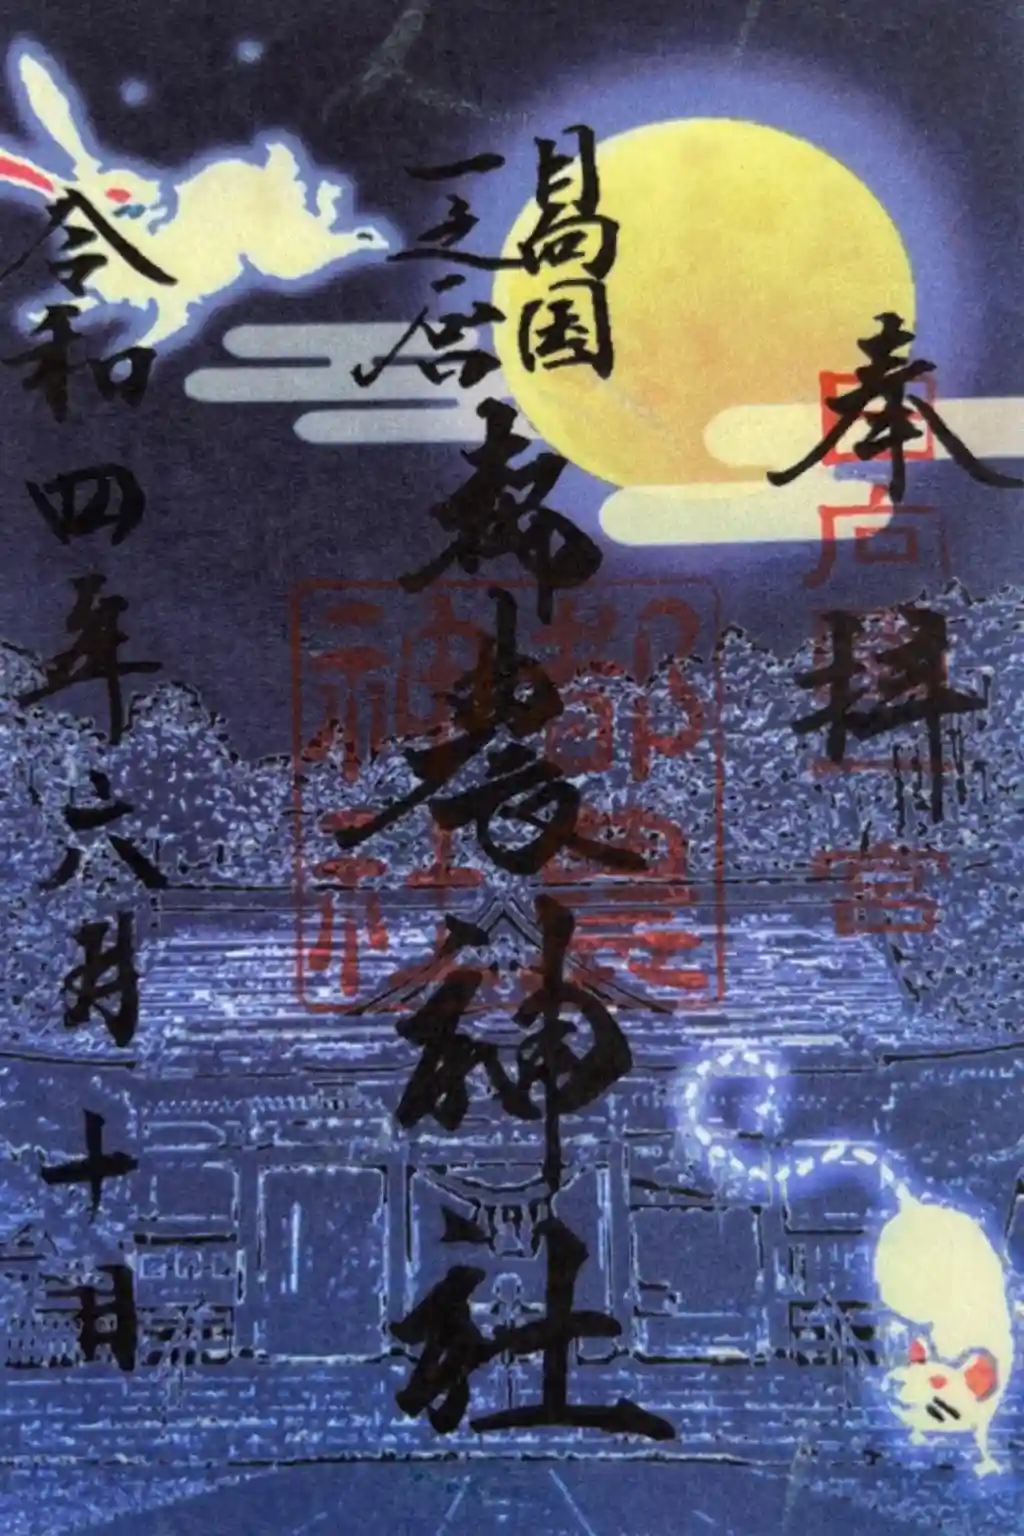 奉拝
日向国
一之宮
都農神社
令和四年六月十日
日向国一宮
都農
神社